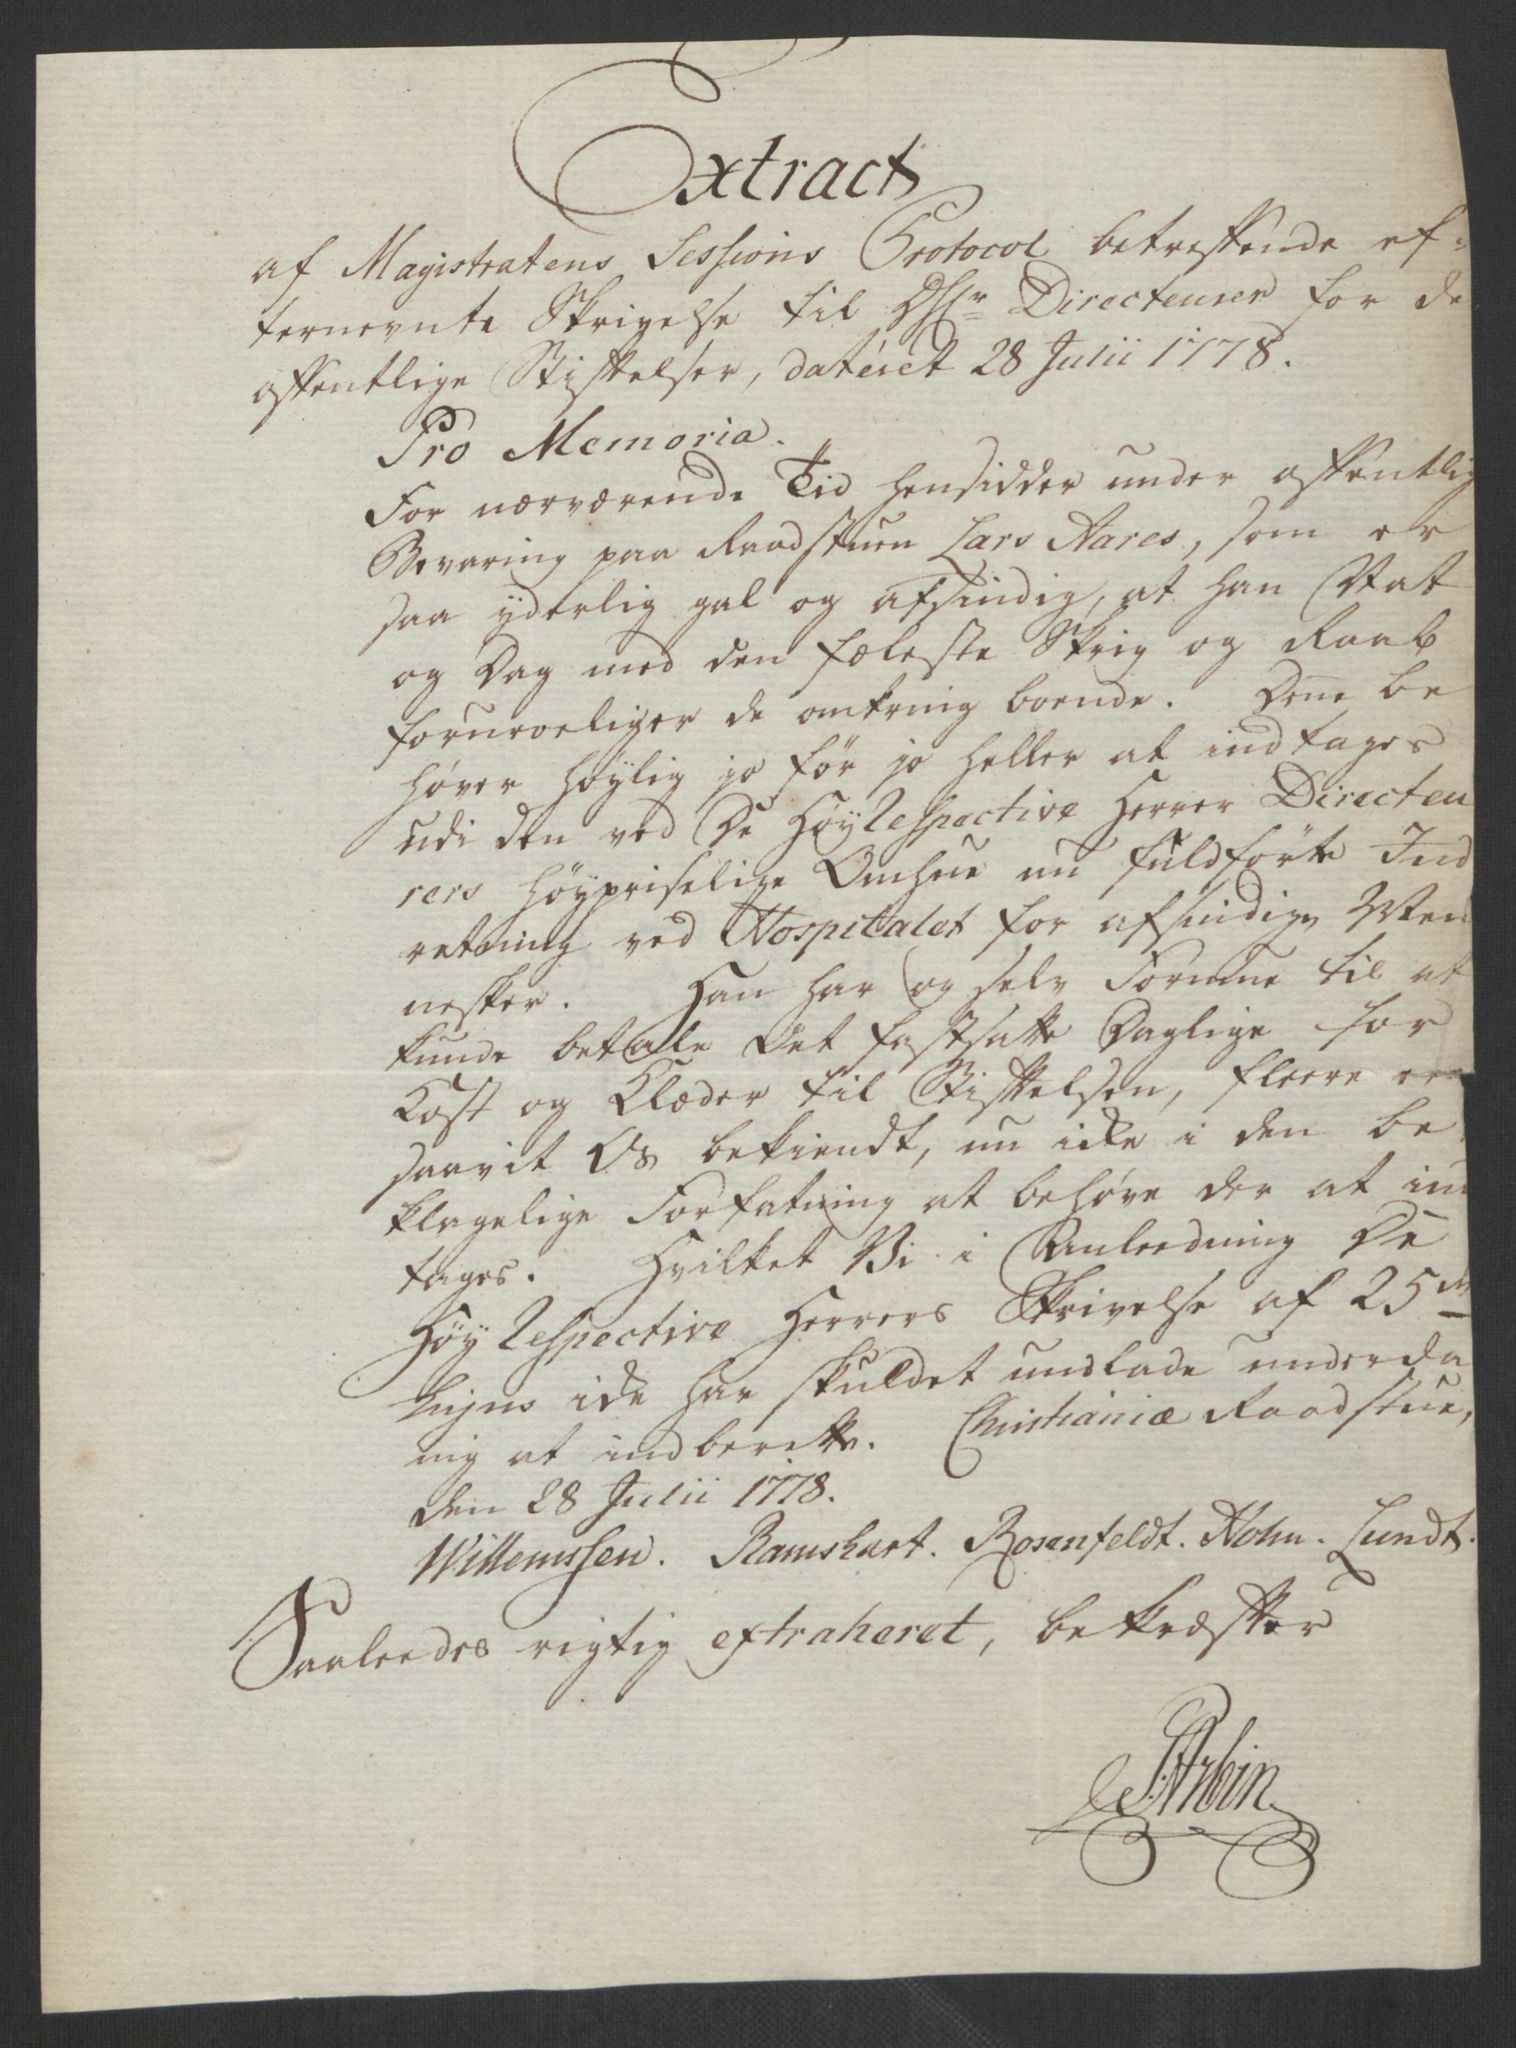 Extract
af Magistratens Sessions Protocol betreffende ef-
ternevnte Skrivelse til DHr. Directeurer for de
offentlige Stiftelser, dateret 28 Julii 1778.
Pro Memoria.
For nærværende Tid hensidder under offentlig
Bevaring paa Raadstuen Lars Aares, som er
saa yderlig gal og afsindig, at han Nat
og Dag med den fæleste Skrig og Raab
foruroeliger de omkring boende. Dene be
høver høylig jo før jo heller at indtages
udi den ved De HøyRespective Herrer Directeu
rers høypriselige Omhue nu fuldførte Ind
retning ved Hospitalet for afsindige Men
nesker. Han har og selv Formue til at
kunde betale det fastsatte Daglige for
Kost og Klæder til Stiftelsen, fleere ere
saavit Os bekiendt, nu icke i den be
klagelige Forfatning at behøve der at ind
tages. Hvilket Vi i Anleedning De
HøyRespective Herrers Skrivelse af 25de
hujus icke har skuldet undlade underda
nig at indberette. Christianiæ Raadstue,
den 28 Julii 1778.
Willemssen. Ramshart. Rosenfeldt. Holm. Lundt.
Saaleedes rigtig extraheret, bekræfter
Arbin